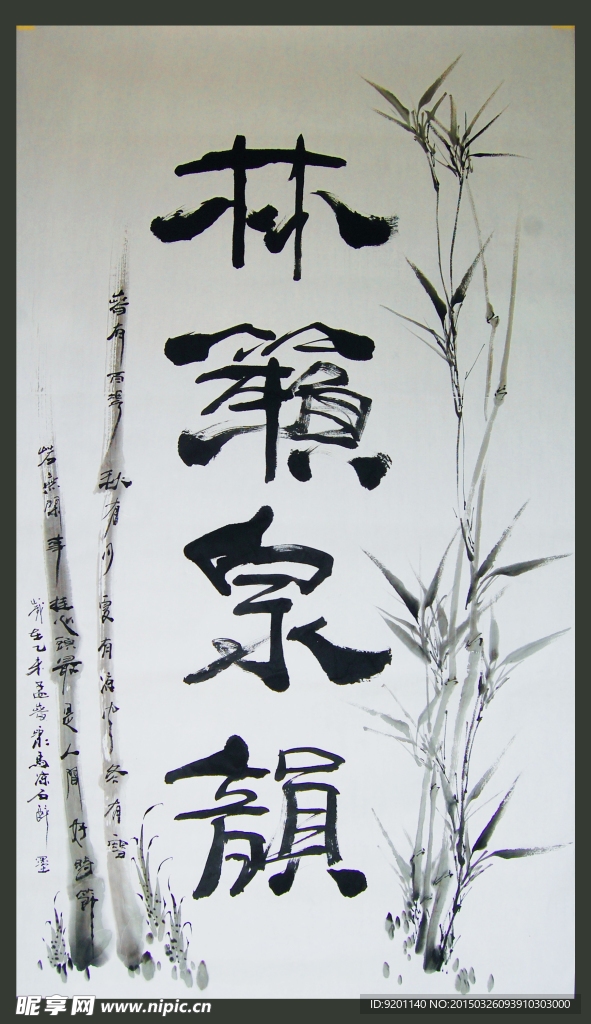 林籟泉韻
春有百花秋有月夏有涼风冬有雪
若無閒事挂心頭最是人間好時節
歲在乙未孟春
醉墨
昵享网 www.nipic.cn
ID:9201140 NO:20150326093910303000